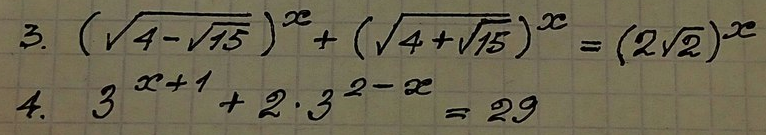 3. (√(4-√15))^x + (√(4+√15))^x = (2√2)^x
4. 3^(x+1) + 2·3^(2-x) = 29